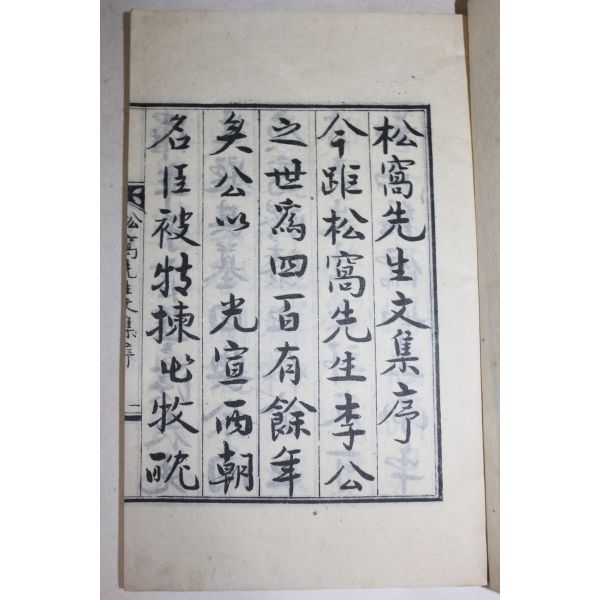 松窩先生文集序
今距松窩先生李公
之世爲四百有餘年
矣公以 光宣兩朝
名臣被特揀出牧耽
松窩先生文集序
一